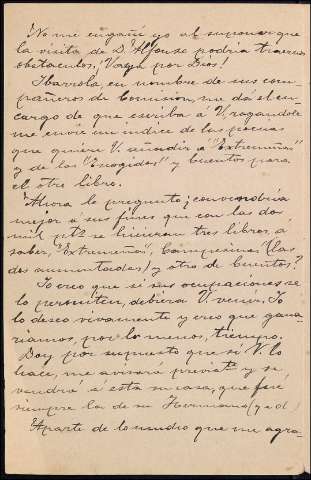 ¡No me engañé yo al suponer que
la visita de D. Alfonso podría traernos
obstáculos, ¡Vaya por Dios!
Ibarrola, en nombre de sus com-
pañeros de Comisión, me dá el en-
cargo de que escriba á V. rogandole
me envíe un indice de las poesias
que quiere V. añadir a "Extremeñas"
y de las "Escogidas" y Cuentos para
el otro libro.
Ahora le pregunto ¿convendría
mejor a sus fines que con las dos
mil pts se hicieran tres libros, a
saber, "Extremeñas", Campesinas (las
dos aumentadas) y otro de Cuentos?
Yo creo que si sus ocupaciones se
lo permiten, debiera V. venir. Yo
lo deseo vivamente y creo que gana-
riamos, por lo menos, tiempo.
Doy por supuesto que si V. lo
hace, me avisará previate y se
vendrá á esta su casa, que fué
siempre la de su Hermano (q e d)
Aparte de lo mucho que me agra-